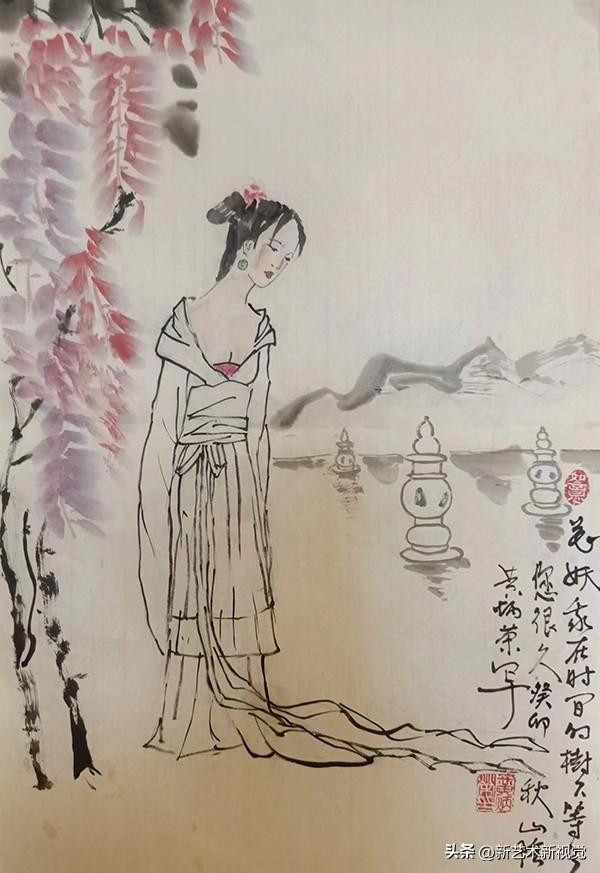 如意
花妖我在时间的樹下等了
您很久癸卯秋山陰
黄炳荣写
头条 @新艺术新视觉